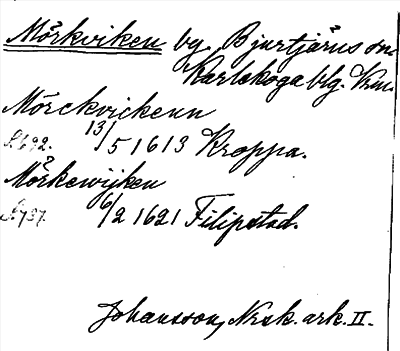 Mörkviken by, Bjurtjärns sn.
Karlskoga blg. Vrm.
Mörckvickenn
13/5 1613 Kroppa.
Mörkewijken
6/2 1621 Filipstad.
Johansson, Nrsk. ark. II.